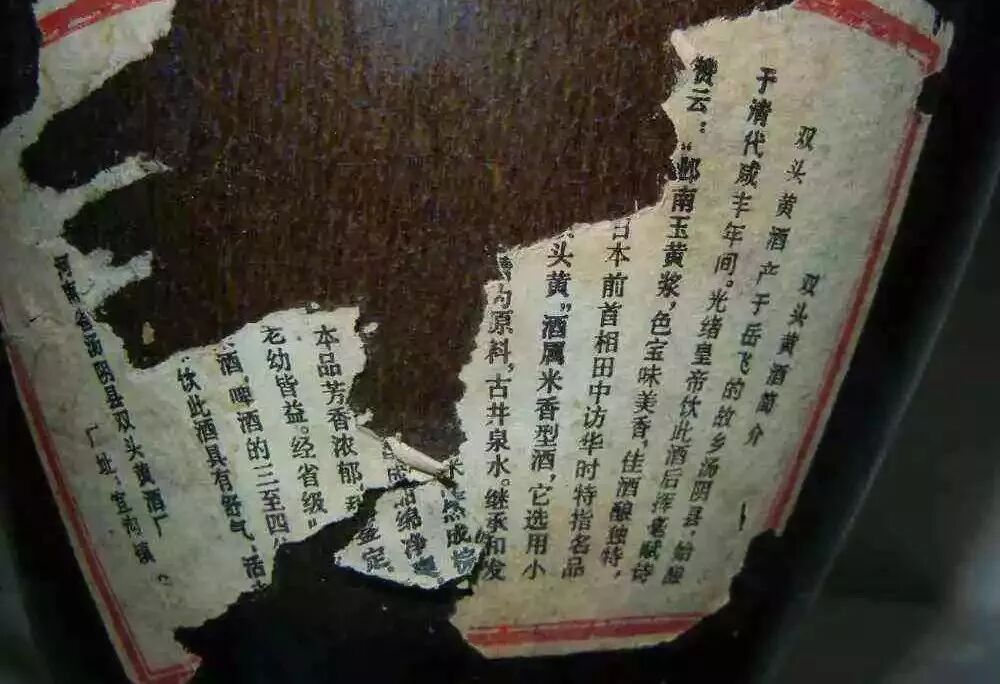 双头黄酒简介
双头黄酒产于岳飞的故乡汤阴县，始酿
于清代咸丰年间。光绪皇帝饮此酒后挥毫赋诗
赞云：“邺南玉黄浆，色宝味美香，佳酒酿独特，
日本前首相田中访华时特指名品
头黄”酒属米香型酒，它选用小
为原料，古井泉水。继承和发
然成
绵净
鉴定
本品芳香浓郁，
老幼皆益。经省级
酒，啤酒的三至四
饮此酒具有舒气，活
河南省汤阴县双头黄酒厂
厂址：宜沟镇